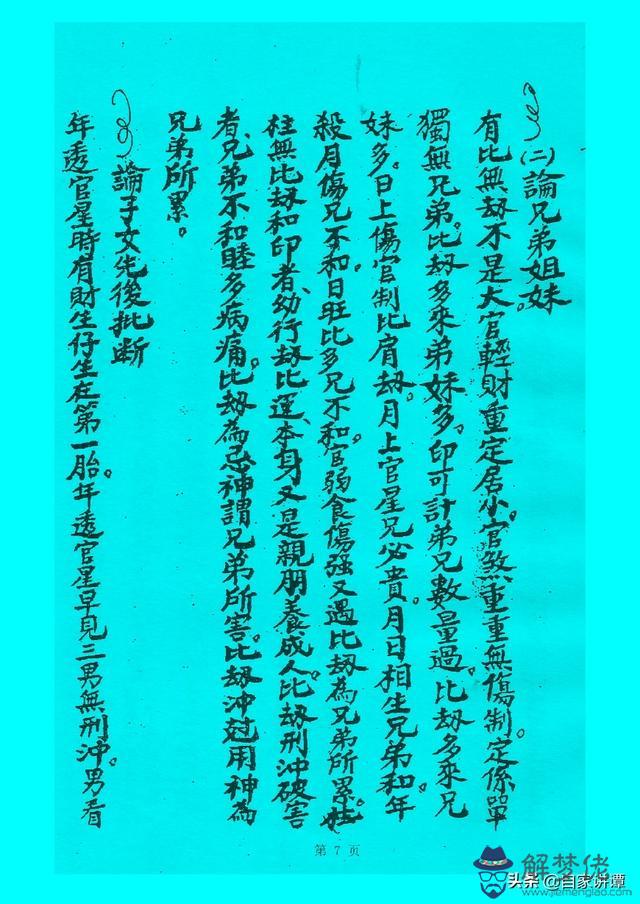 (二)論兄弟姐妹
有比無劫不是大。官輕財重定居小。官煞重重無傷制。定係單
獨無兄弟。比劫多來弟妹多。印可計弟兄數量過。比劫多來兄
妹多。日上傷官制比肩劫。月上官星兄必貴。月日相生兄弟和。年
殺月傷兄不和。日旺比多兄不和。官弱食傷强又遇比劫為兄弟所累。
柱無比劫和印者、幼行劫比運、本身又是親朋養成人。比劫刑沖破害
者、兄弟不和睦多病痛。比劫為忌神謂兄弟所害。比劫沖尅用神為
兄弟所累。
論子女先後批断
年透官星時有財生仔生在第一胎。年透官星早見三男無刑沖。男看
第 7 页
解梦佬
www.jiemenglao.com
头条 @自家讲谭